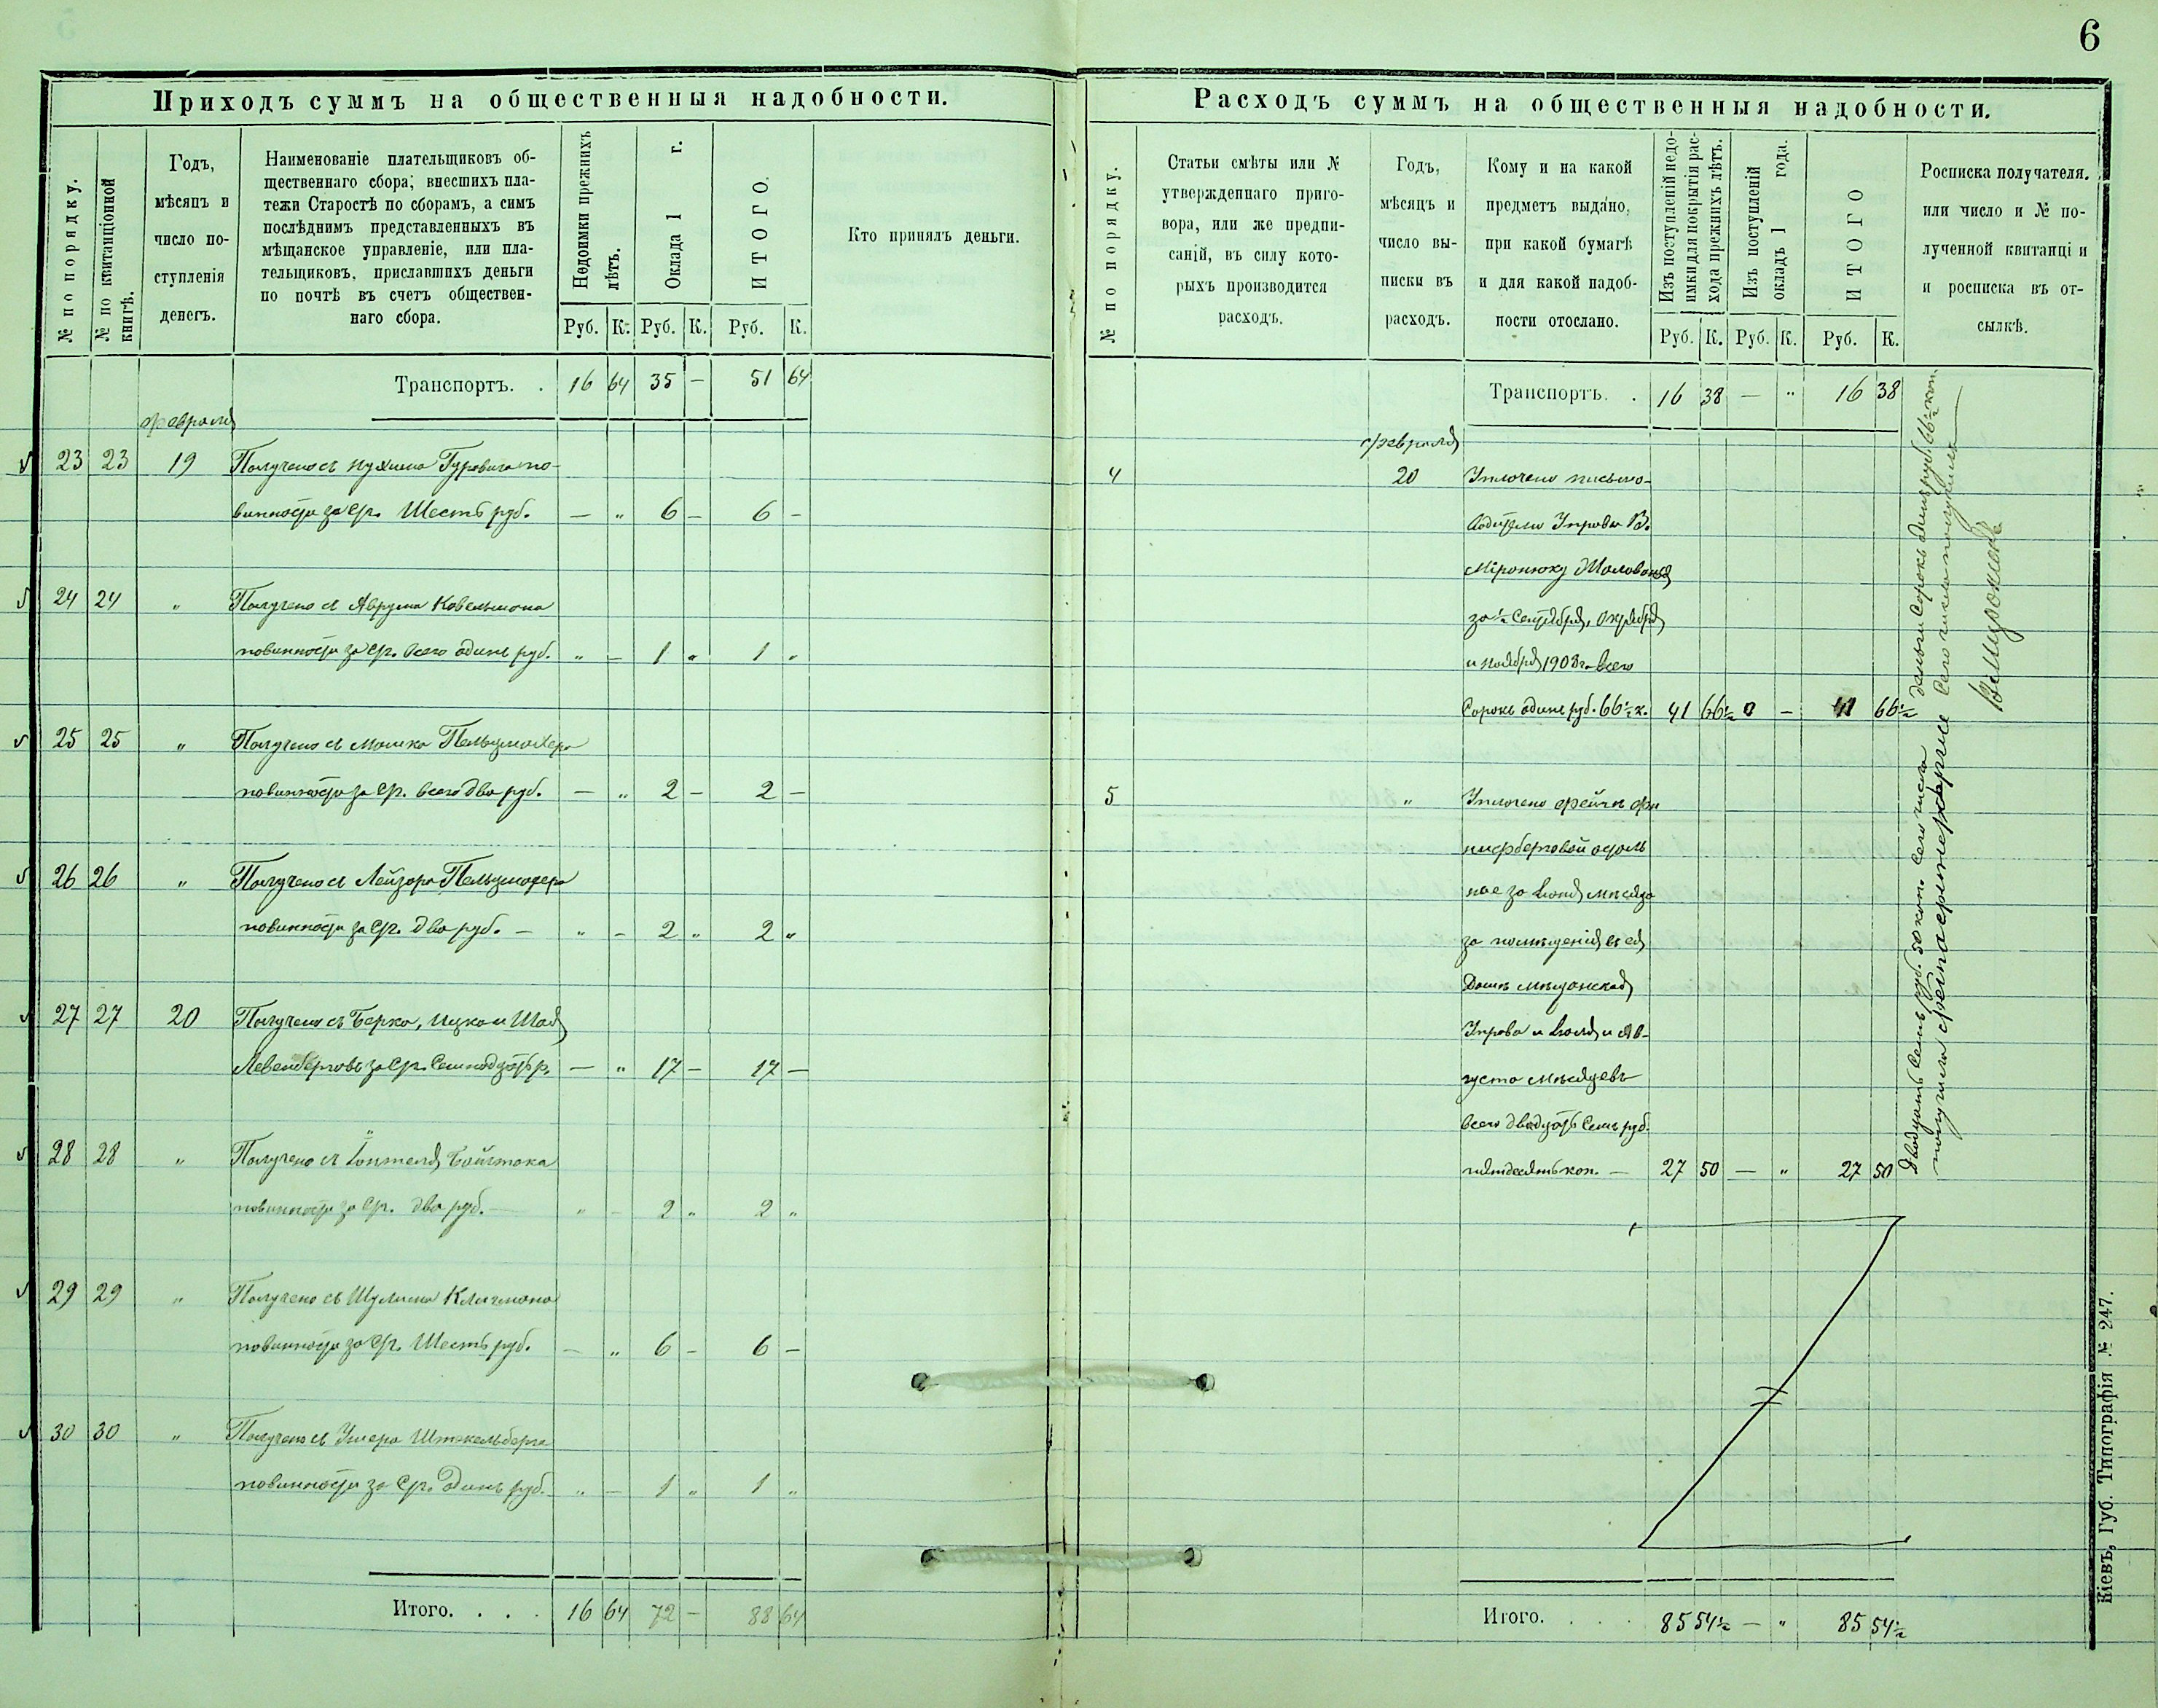 6
Приходъ суммъ на общественныя надобности.
№ по порядку.
№ по квитанціонной книгѣ.
Годъ,
мѣсяцъ и
число по-
ступленія
денегъ.
Наименованіе плательщиковъ об-
щественнаго сбора; внесшихъ пла-
тежи Старостѣ по сборамъ, а симъ
послѣднимъ представленныхъ въ
мѣщанское управленіе, или пла-
тельщиковъ, приславшихъ деньги
по почтѣ въ счетъ обществен-
наго сбора.
Недоимки прежнихъ
лѣтъ.
Оклада 1 г.
ИТОГО.
Кто принялъ деньги.
Руб. К. Руб. К. Руб. К.
Транспортъ. . 16 64 35 — 51 64
февраля
23 23 19 Получено съ Нухима Гуровича по-
винности за Ср. Шесть руб. — „ 6 — 6 —
24 24 „ Получено съ Аврума Ковельмана
повинности за Ср. всего одинъ руб. „ — 1 „ 1 „
25 25 „ Получено съ Мошка Пельцмахера
повинности за Ср. всего два руб. — „ 2 — 2 —
26 26 „ Получено съ Лейзора Пельцмахера
повинности за Ср. два руб. — „ — 2 „ 2 „
27 27 20 Получено съ Берка, Ицка и Шая
Левенберговъ за Ср. Семнадцать р. — „ 17 — 17 —
28 28 „ Получено съ Бойгмана
повинности за Ср. два руб. — „ — 2 „ 2 „
29 29 „ Получено съ Шулима Клигмана
повинности за Ср. Шесть руб. — „ 6 — 6 —
30 30 „ Получено съ Умера Штекельберга
повинности за Ср. Одинъ руб. „ — 1 „ 1 „
Итого. . . . 16 64 72 — 88 64
Расходъ суммъ на общественныя надобности.
№ по порядку.
Статьи смѣты или №
утвержденнаго приго-
вора, или же предпи-
саній, въ силу кото-
рыхъ производится
расходъ.
Годъ,
мѣсяцъ и
число вы-
писки въ
расходъ.
Кому и на какой
предметъ выдано,
при какой бумагѣ
и для какой надоб-
ности отослано.
Изъ поступленій недо-
имки для покрытія рас-
хода прежнихъ лѣтъ.
Изъ поступленій
окладъ 1 года.
ИТОГО
Росписка получателя.
или число и № по-
лученной квитанці и
и росписка въ от-
сылкѣ.
Руб. К. Руб. К. Руб. К.
Транспортъ. . 16 38 — „ 16 38
февраля
4 20 Уплочено письмо-
водителю Управы В.
Міронюку Жалованья
за ½ Сентября, Октября
и Ноября 1908 г. всего
Сорокъ одинъ руб. 66½ к. 41 66½ 0 — 41 66½
5 „ Уплочено Фейгѣ Фи
нифберговой осталь
ное за Іюнь мѣсяцъ
за помѣщенія въ ея
Домѣ мѣщанской
Управа и Іюля и Ав-
густа мѣсяцевъ
всего двадцать семь руб.
пятдесять коп. — 27 50 — „ 27 50
Деньги Сорокъ одинъ руб. 66½ коп.
сего числа получилъ
В. Миронюкъ
Двадцать семь руб. 50 коп. сего числа
получила
Итого. . . . 85 54½ — „ 85 54½
Кіевъ, Губ. Типографія № 247.